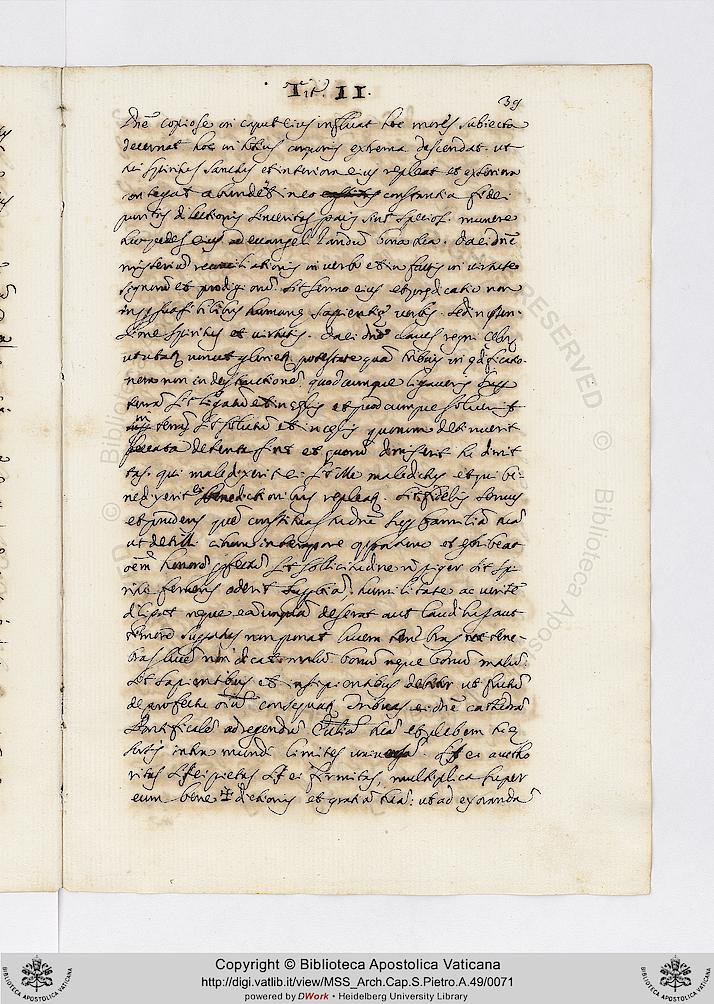 Tit. II.
39
Dñe copiose in caput eius influat hoc in oris subiecta
decurrat hoc in totius corporis extrema descendat. ut
tui spiritus sanctus et interiora eius repleat et exteriora
contegat abundet in eo constantia fidei
puritas dilectionis sinceritas pacis sint speciosi munere
tuo pedes eius ad evangelizandum bona tua. Da ei dñe
ministerium reconciliationis in verbo et in factis in virtute
signorum et prodigiorum. Sit sermo eius et predicatio non
in persuasibilibus humane sapientie verbis. sed in osten-
sione spiritus et virtutis. Da ei dñe claves regni celorum
utatur nec glorietur potestate quam tribuis in edificatio
nem non in destructionem quodcumque ligaverit super
terram sit ligatum et in celis et quodcumque solverit
in terris sit solutum et in celis quorum detinuerit
peccata detenta sint et quorum dimiserit tu dimit
tas. qui maledixerit ei sit ille maledictus et qui be-
nedixerit ei benedictionibus repleatur. Sit fidelis servus
et prudens quem constituas tu dñe super familiam tuam
ut det illi cibum in tempore opportuno et exhibeat
oem hominem perfectum sit sollicitudine impiger sit spi
ritu fervens oderit superbiam. humilitatem ac veritatem
diligat neque eam unquam deserat aut laudibus aut
timore superatus non ponat lucem tenebras nec tene-
bras lucem non dicat malum bonum neque bonum malum.
Sit sapientibus et insipientibus debitor ut fructum
de profectu omnium consequatur Tribuas ei dñe cathedram
Pontificalem ad regendum Ecclesiam tuam et plebem
intra mundi limites universam. Sis ei auctho
ritas sis ei pietas sis ei firmitas, multiplica super
eum bene ✠ dictionis et gratiam tuam: ut ad exorandam
Copyright © Biblioteca Apostolica Vaticana
http://digi.vatlib.it/view/MSS_Arch.Cap.S.Pietro.A.49/0071
powered by DWork • Heidelberg University Library